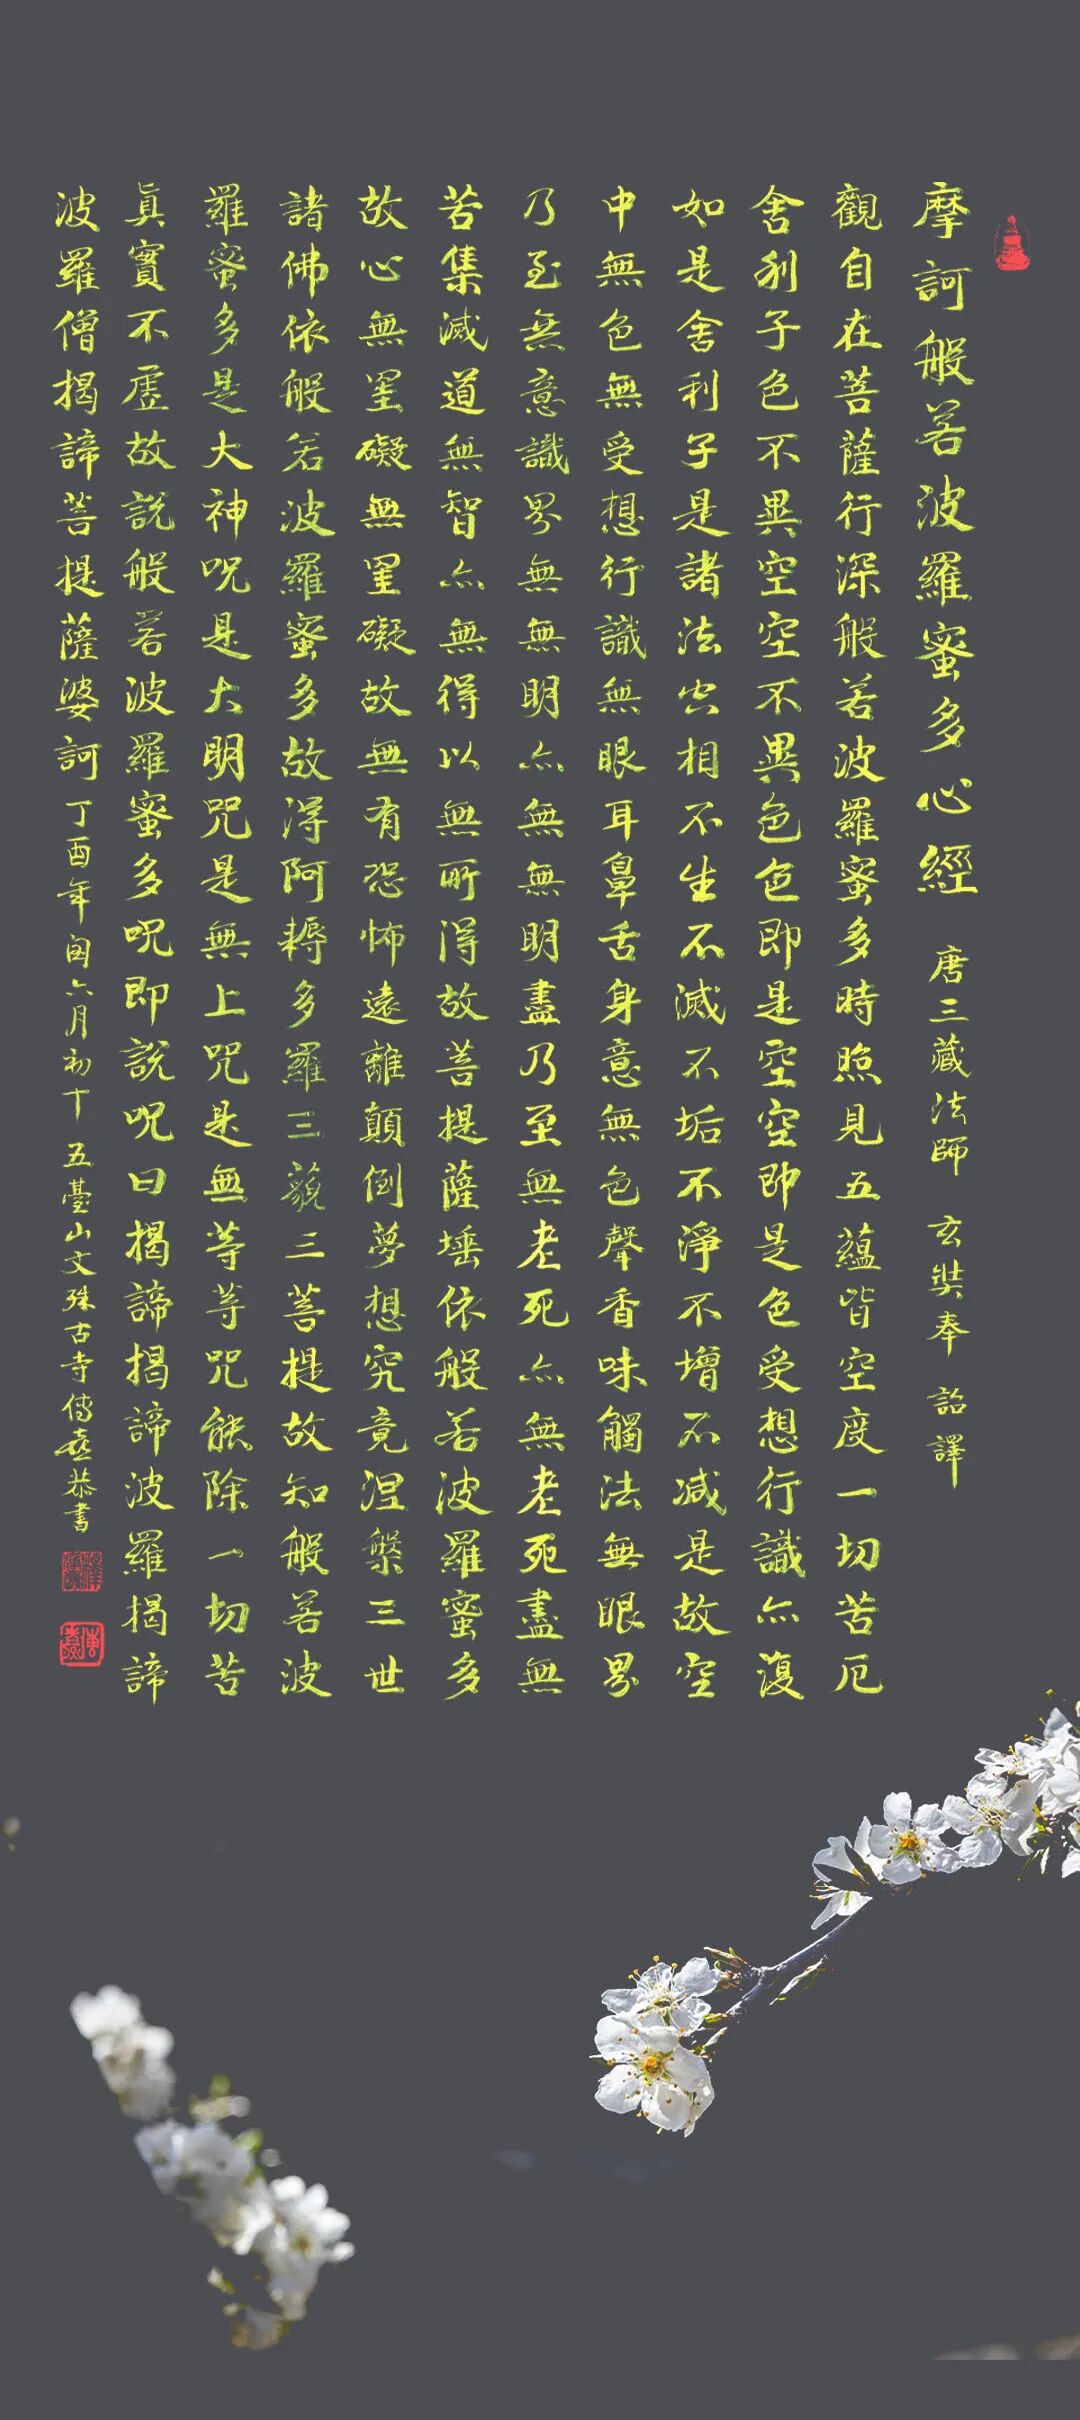 摩訶般若波羅蜜多心經 唐三藏法師 玄奘奉 詔譯
觀自在菩薩行深般若波羅蜜多時照見五蘊皆空度一切苦厄
舍利子色不異空空不異色色即是空空即是色受想行識亦復
如是舍利子是諸法空相不生不滅不垢不淨不增不减是故空
中無色無受想行識無眼耳鼻舌身意無色聲香味觸法無眼界
乃至無意識界無無明亦無無明盡乃至無老死亦無老死盡無
苦集滅道無智亦無得以無所得故菩提薩埵依般若波羅蜜多
故心無罣礙無罣礙故無有恐怖遠離顛倒夢想究竟涅槃三世
諸佛依般若波羅蜜多故得阿耨多羅三藐三菩提故知般若波
羅蜜多是大神咒是大明咒是無上咒是無等等咒能除一切苦
真實不虛故說般若波羅蜜多呪即說呪曰揭諦揭諦波羅揭諦
波羅僧揭諦菩提薩婆訶 丁酉年閏六月初十 五臺山文殊古寺傳意恭書